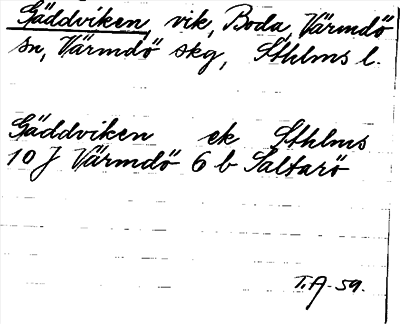 Gäddviken, vik, Boda, Värmdö
sn, Värmdö skg, Sthlms l.
Gäddviken ek Sthlms
10 J Värmdö 6 b Saltarö
T.A. 59.